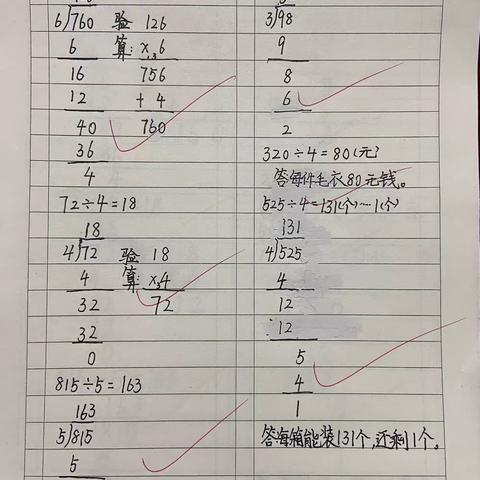 6)760 验 126
6 算: ×36
16 756
12 + 4
40 760
36
4
72÷4=18
18
4)72 验 18
4 算: ×34
32 72
32
0
815÷5=163
163
5)815
5
3)98
9
8
6
2
320÷4=80(元)
答每件毛衣80元钱。
525÷4=131(个)…1(个)
131
4)525
4
12
12
5
4
1
答每箱能装131个,还剩1个。